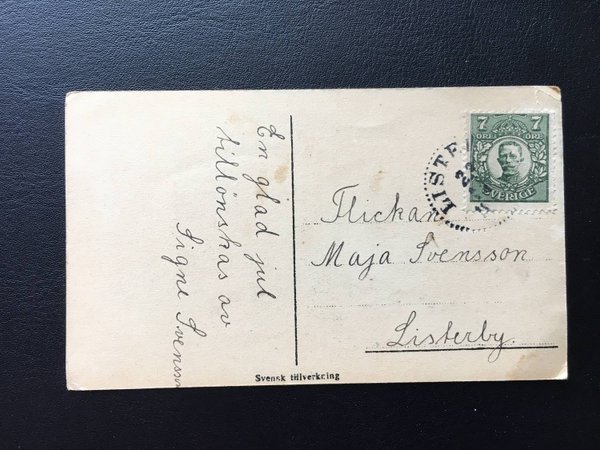 En glad jul
tillönskas av
Signe Svensson
Svensk tillverkning
7 7
ÖRE ÖRE
SVERIGE
LISTE
22
Flickan
Maja Svensson
Listerby.